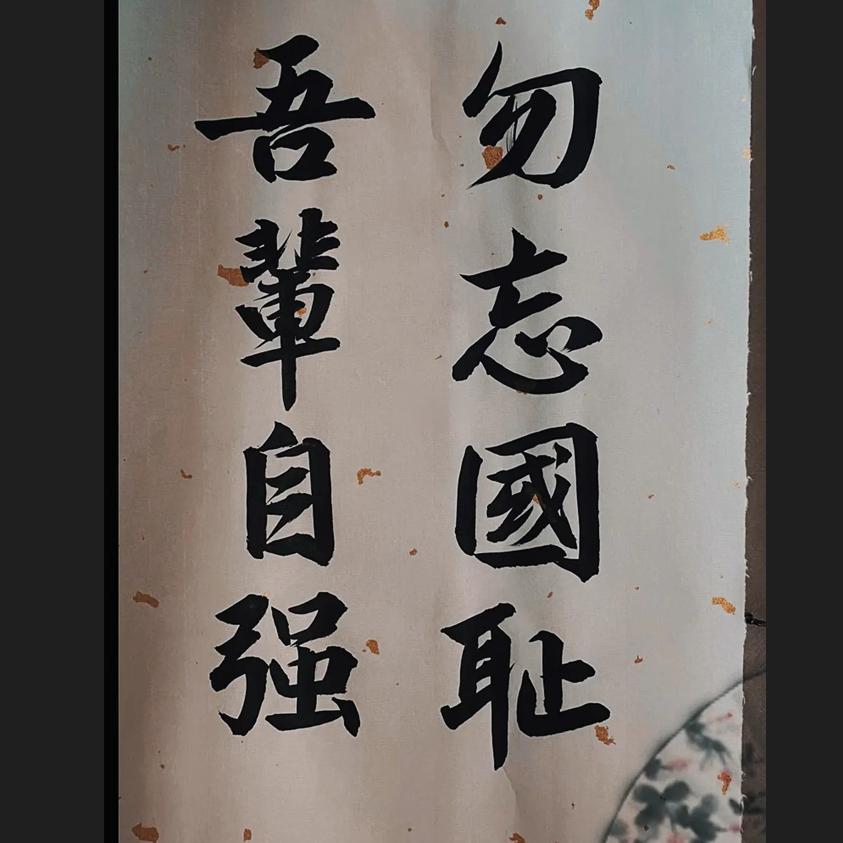 勿忘國耻
吾輩自强